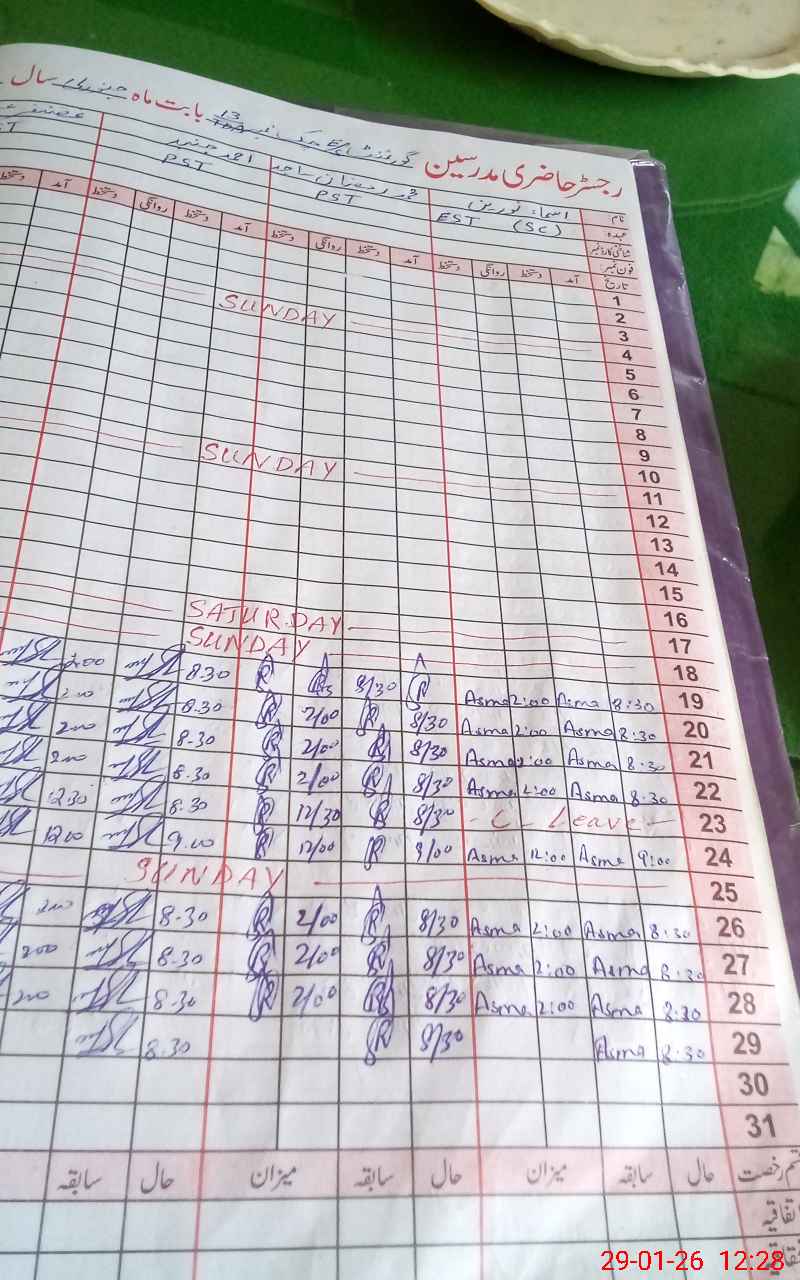 رجسٹر حاضری مدرسین گورنمنٹ بابت ماہ جنوری سال
نام اسماء نورین محمد رمضان ساجد احمد
عہدہ EST (SC) PST PST
شناختی کارڈ نمبر
فون نمبر
تاریخ آمد دستخط روانگی دستخط آمد دستخط روانگی دستخط آمد دستخط روانگی دستخط آمد دستخط
1
2
3
SUNDAY 4
5
6
7
8
9
10
SUNDAY 11
12
13
14
15
16
SATURDAY 17
SUNDAY 18
200 8.30 8/30 Asma 2:00 Asma 8:30 19
200 8.30 2/00 8/30 Asma 2:00 Asma 8:30 20
200 8.30 2/00 8/30 Asma 2:00 Asma 8:30 21
200 8.30 2/00 8/30 Asma 2:00 Asma 8:30 22
12.30 8.30 12/30 8/30 C Leave 23
1200 9.00 12/00 9/00 Asma 12:00 Asma 9:00 24
SUNDAY 25
200 8.30 2/00 8/30 Asma 2:00 Asma 8:30 26
200 8.30 2/00 8/30 Asma 2:00 Asma 8:30 27
200 8.30 2/00 8/30 Asma 2:00 Asma 8:30 28
8.30 8/30 Asma 8:30 29
30
31
قسم رخصت حال سابقہ میزان حال سابقہ میزان حال سابقہ
اتفاقیہ
29-01-26 12:28